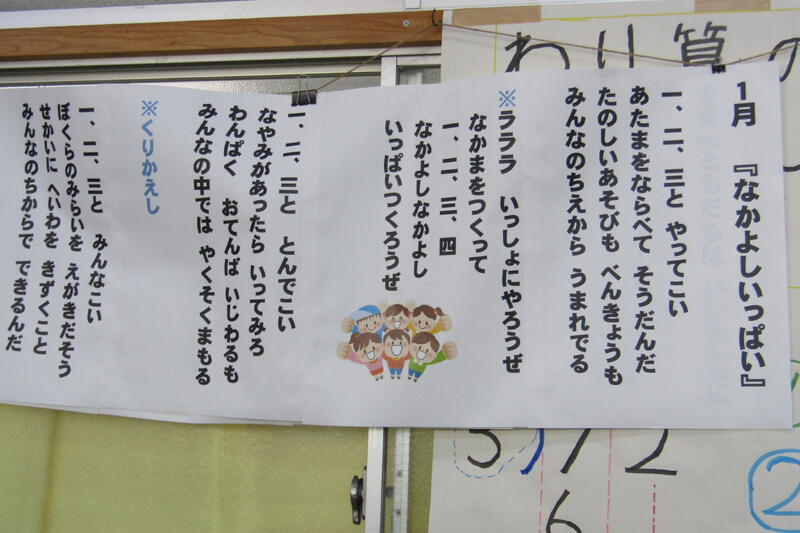 わり算の
1月 『なかよしいっぱい』
一、二、三と やってこい
あたまをならべて そうだんだ
たのしいあそびも べんきょうも
みんなのちえから うまれでる
※ラララ いっしょにやろうぜ
なかまをつくって
一、二、三、四
なかよしなかよし
いっぱいつくろうぜ
一、二、三と とんでこい
なやみがあったら いってみろ
わんぱく おてんば いじわるも
みんなの中では やくそくまもる
※くりかえし
一、二、三と みんなこい
ぼくらのみらいを えがきだそう
せかいに へいわを きずくこと
みんなのちからで できるんだ
3)72
6
②